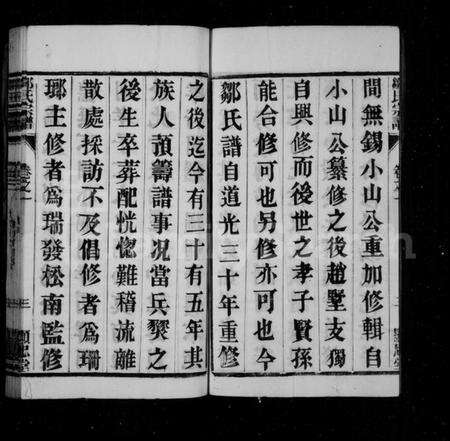 間無錫小山公重加修輯自
小山公纂修之後趙墅支獨
自與修而後世之孝子賢孫
能合修可也另修亦可也今
鄒氏譜自道光三十年重修
之後迄今有三十有五年其
族人預籌譜事况當兵燹之
後生卒葬配恍惚難稽流離
散處採訪不及倡修者為珊
瑯主修者為瑞發松南監修
鄒氏宗譜
卷之一